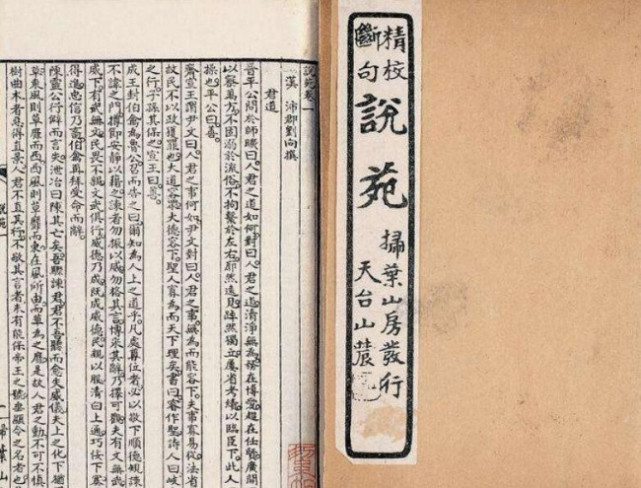 精校
斷句
說苑
掃葉山房發行
天台山農
說苑卷一
漢 沛郡劉向撰
君道
晉平公問於師曠曰。人君之道如何。對曰。人君之道。清淨無為。務在博愛。趨在任賢。廣開
以察萬方。不固溺於流俗。不拘繫於左右。廓然遠見。踔然獨立。屢省考績。以臨臣下。此人
操也。平公曰善。
齊宣王謂尹文曰。人君之事何如。尹文對曰。人君之事。無為而能容下。夫事寡易從。法省
故民不以政獲罪也。大道容眾。大德容下。聖人寡為而天下理矣。書曰睿作聖。詩人曰岐
之行。子孫其保之。宣王曰善。
成王封伯禽為魯公。召而告之曰。爾知為人上之道乎。凡處尊位者。必以敬下。順德規諫
不諱之門。撙節安靜以藉之。諫者勿振以威。勿格其言。博采其辭。乃擇可觀。夫有文無武
威下。有武無文。民畏不親。文武俱行。威德乃成。既成威德。民親以服。清白上通。巧佞下塞
得進。忠信乃畜。伯禽再拜受命而辭。
陳靈公行僻而言失。泄冶曰。陳其亡矣。吾驟諫君。君不吾聽而愈失威儀。夫上之化下。猶
草。東風則草靡而西。西風則草靡而東。在風所由而草為之靡。是故人君之動。不可不慎
樹曲木者。惡得直景。人君不直其行。不敬其言者。未有能保帝王之號。垂顯令之名者也
說苑一
一掃葉山